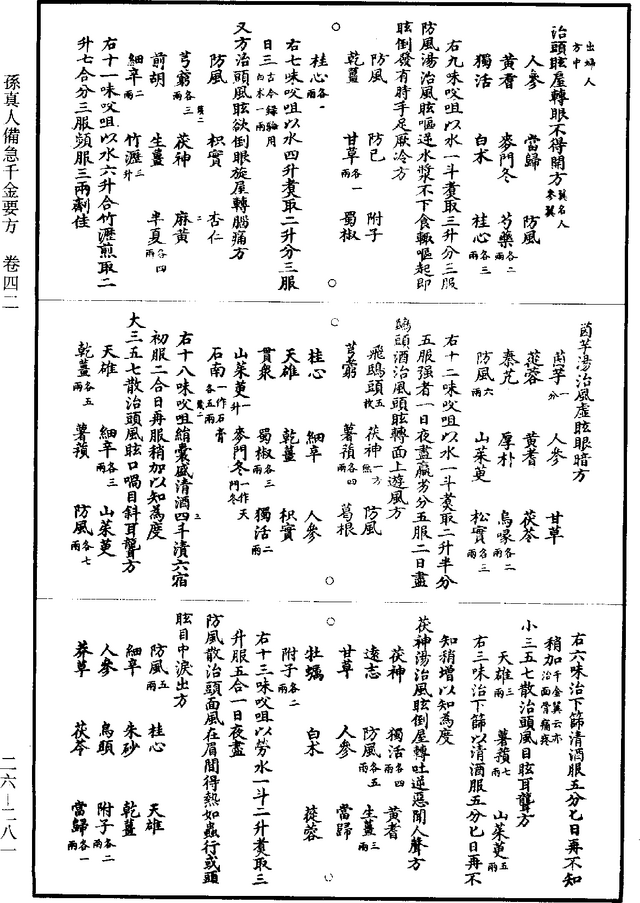 孫真人備急千金要方　卷四二
二六—二八一
治頭眩屋轉眼不得開方 出婦人方中 翼名人參翼
人參　當歸　防風
黃耆　麥門冬　芍藥各二兩
獨活　白朮　桂心各三兩
右九味㕮咀以水一斗煑取三升分三服
防風湯治風眩嘔逆水漿不下食輙嘔起即
眩倒發有時手足厥冷方
防風　防己　附子
乾薑　甘草各一兩　蜀椒
桂心各一
右七味㕮咀以水四升煑取二升分三服
日三 古今錄驗用白朮一兩
又方治頭風眩欲倒眼旋屋轉腦痛方
防風　枳實　杏仁
芎藭各三兩　茯神　麻黃
前胡　生薑　半夏各四兩
細辛二兩　竹瀝三升
右十一味㕮咀以水六升合竹瀝煎取二
升七合分三服頻服三兩劑佳
茵芋湯治風虛眩眼暗方
茵芋一分　人參　甘草
蓯蓉　黃耆　茯苓
秦艽　厚朴　烏喙各二兩
防風六兩　山茱萸　松實各三兩
右十二味㕮咀以水一斗煑取二升半分
五服强者一日夜盡羸劣分五服二日盡
鴟頭酒治風頭眩轉面上遊風方
飛鴟頭五枚　茯神一方無　防風
芎藭　薯蕷各四兩　葛根
桂心　細辛　人參
天雄　乾薑　枳實
貫衆　蜀椒各三兩　獨活二兩
山茱萸一升　麥門冬一作天門冬
石南各五兩一作石膏
右十八味㕮咀絹囊盛清酒四斗漬六宿
初服二合日再服稍加以知為度
大三五七散治頭風眩口喎目斜耳聾方
天雄　細辛各三兩　山茱萸
乾薑各五兩　薯蕷　防風各七兩
右六味治下篩清酒服五分匕日再不知
稍加 千金翼云亦治面骨痛痺
小三五七散治頭風目眩耳聾方
天雄三兩　薯蕷七兩　山茱萸五兩
右三味治下篩以清酒服五分匕日再不
知稍增以知為度
茯神湯治風眩倒屋轉吐逆惡聞人聲方
茯神　獨活各四兩　黃耆
遠志　防風各五兩　生薑三兩
甘草　人參　當歸
牡蠣　白朮　蓯蓉
附子各二兩
右十三味㕮咀以勞水一斗二升煑取三
升服五合一日夜盡
防風散治頭面風在眉間得熱如蟲行或頭
眩目中淚出方
防風五兩　桂心　天雄
細辛　朱砂　乾薑
人參　烏頭　附子各二兩
莽草　茯苓　當歸各一兩